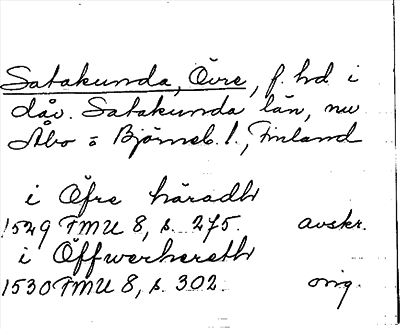 Satakunda, Övre, f. hd i
dåv. Satakunda län, nu
Åbo o Björneb. l., Finland
i Öfre häradh
1529 FMU 8, s. 275. avskr.
i Öffwerhereth
1530 FMU 8, s. 302. orig.